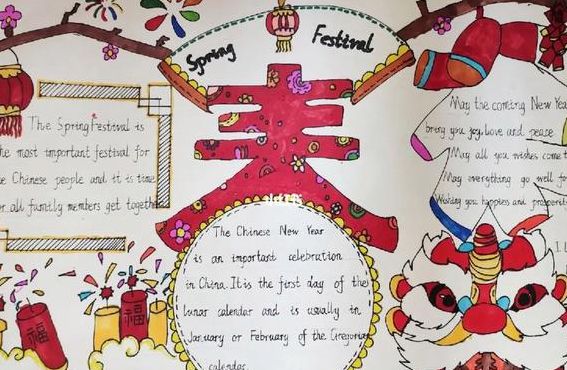 Spring Festival
春
The Spring Festival is
the most important festival for
Chinese people and it is time
for all family members get together
The Chinese New Year
is an important celebration
in China. It is the first day of the
lunar calendar and is usually in
January or February of the Gregorian
calendar.
May the coming New Year
bring you joy, love and peace
May all you wishes come t
May everything go well fo
Wishing you happiess and prosperit
I
福
福